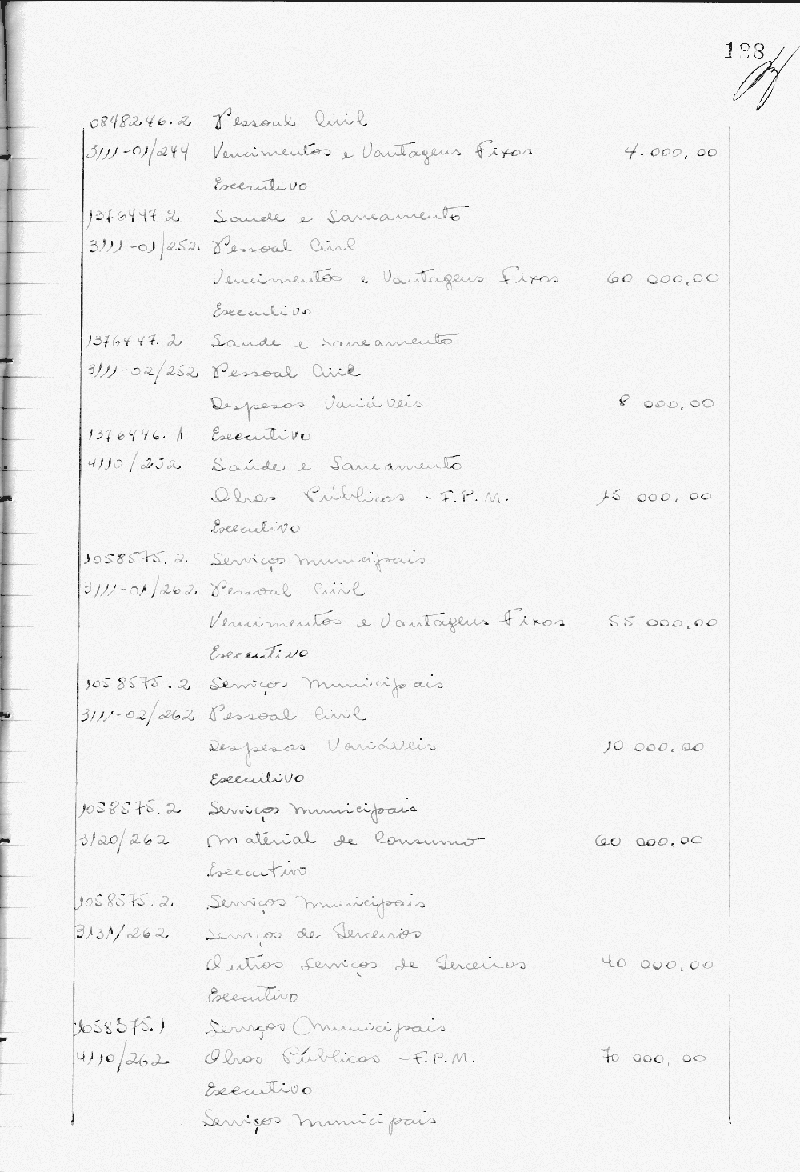 188
0848246.2 Pessoal Civil
3111-01/244 Vencimentos e Vantagens Fixas 4.000,00
Executivo
1376447.2 Saude e Saneamento
3111-01/252. Pessoal Civil
Vencimentos e Vantagens Fixas 60 000,00
Executivo
1376447.2 Saude e Saneamento
3111-02/252 Pessoal Civil
Despesas Variáveis 8 000,00
1376446.1 Executivo
4110/252 Saúde e Saneamento
Obras Públicas - F.P.M. 15 000,00
Executivo
1058575.2. Serviços Municipais
3111-01/262. Pessoal Civil
Vencimentos e Vantagens Fixas 55 000,00
Executivo
1058575.2 Serviços Municipais
3111-02/262 Pessoal Civil
Despesas Variáveis 10 000,00
Executivo
1058575.2 Serviços Municipais
3120/262 Material de Consumo 60 000,00
Executivo
1058575.2. Serviços Municipais
3131/262 Serviços de Terceiros
Outros Serviços de Terceiros 40 000,00
Executivo
1058575.1 Serviços Municipais
4110/262 Obras Públicas - F.P.M. 70 000,00
Executivo
Serviços Municipais